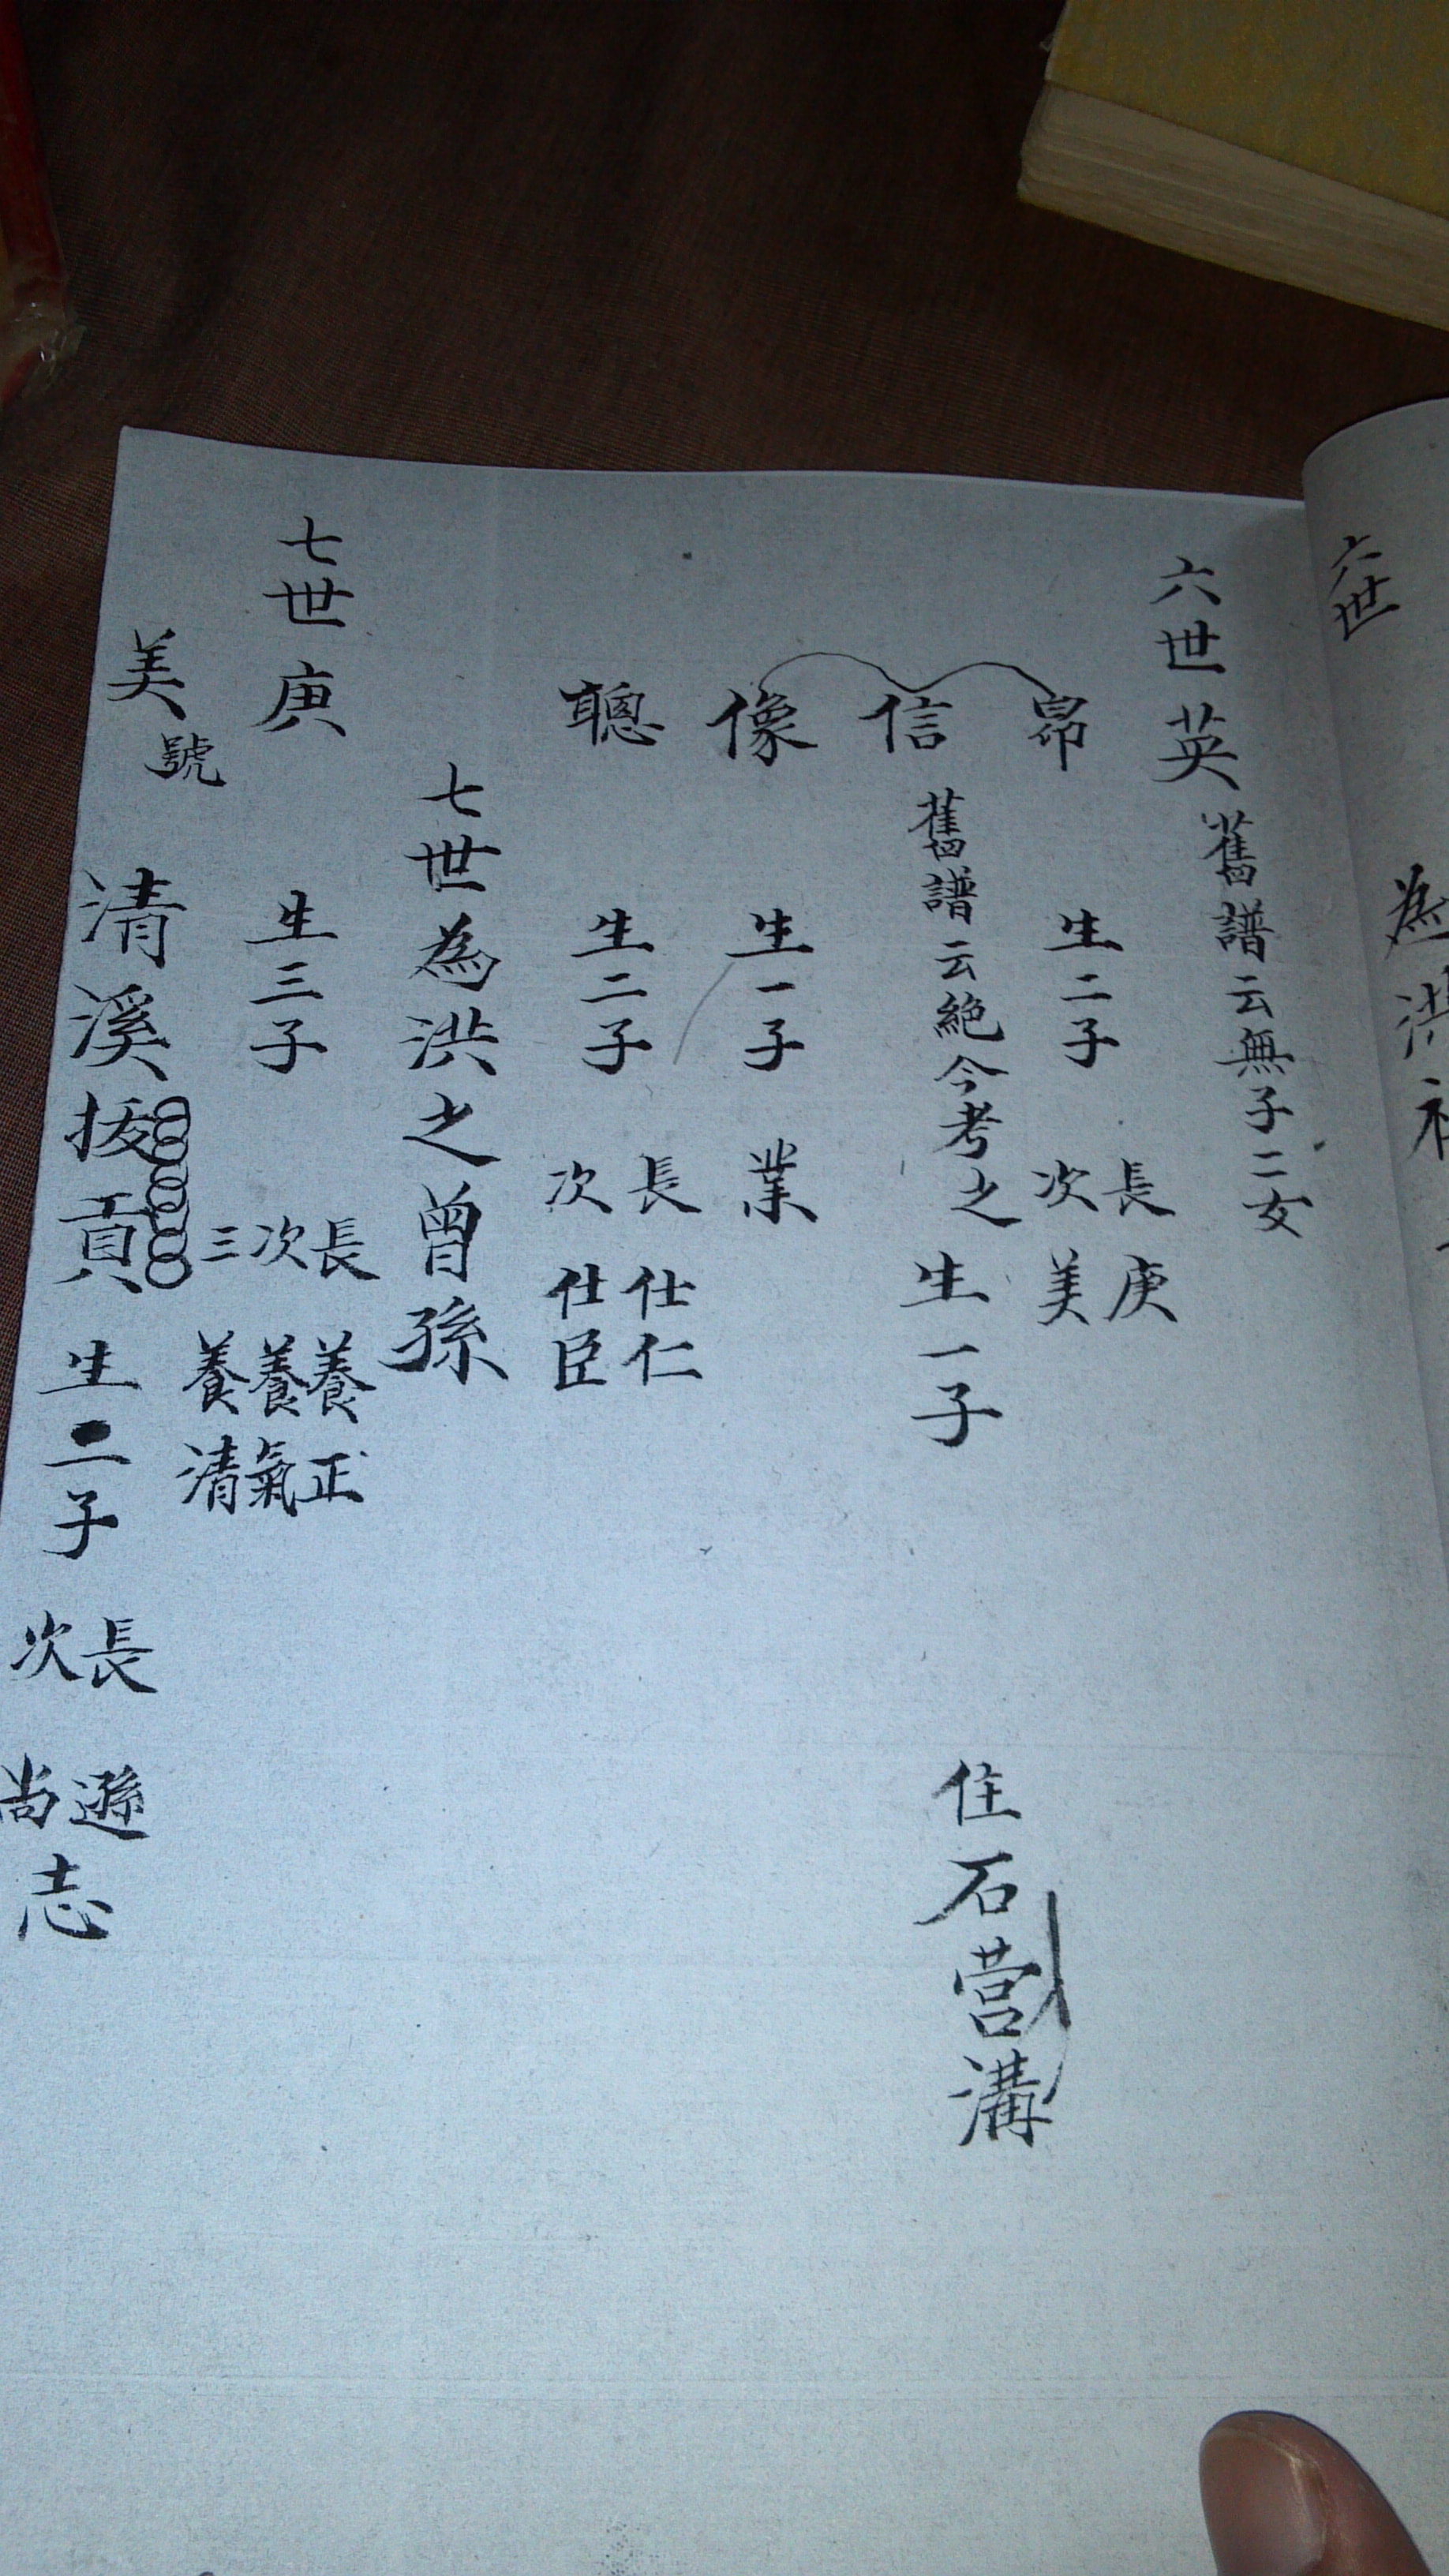 六世
為洪
六世 英 舊譜云無子二女
昴 生二子 長庚 次美
信 舊譜云絕今考之 生一子 住石营溝
像 生一子 業
聰 生二子 長仕仁 次仕臣
七世為洪之曾孫
七世 庚 生三子 長養正 次養氣 三養清
美號 清溪拔貢 生二子 長遜 次尚志